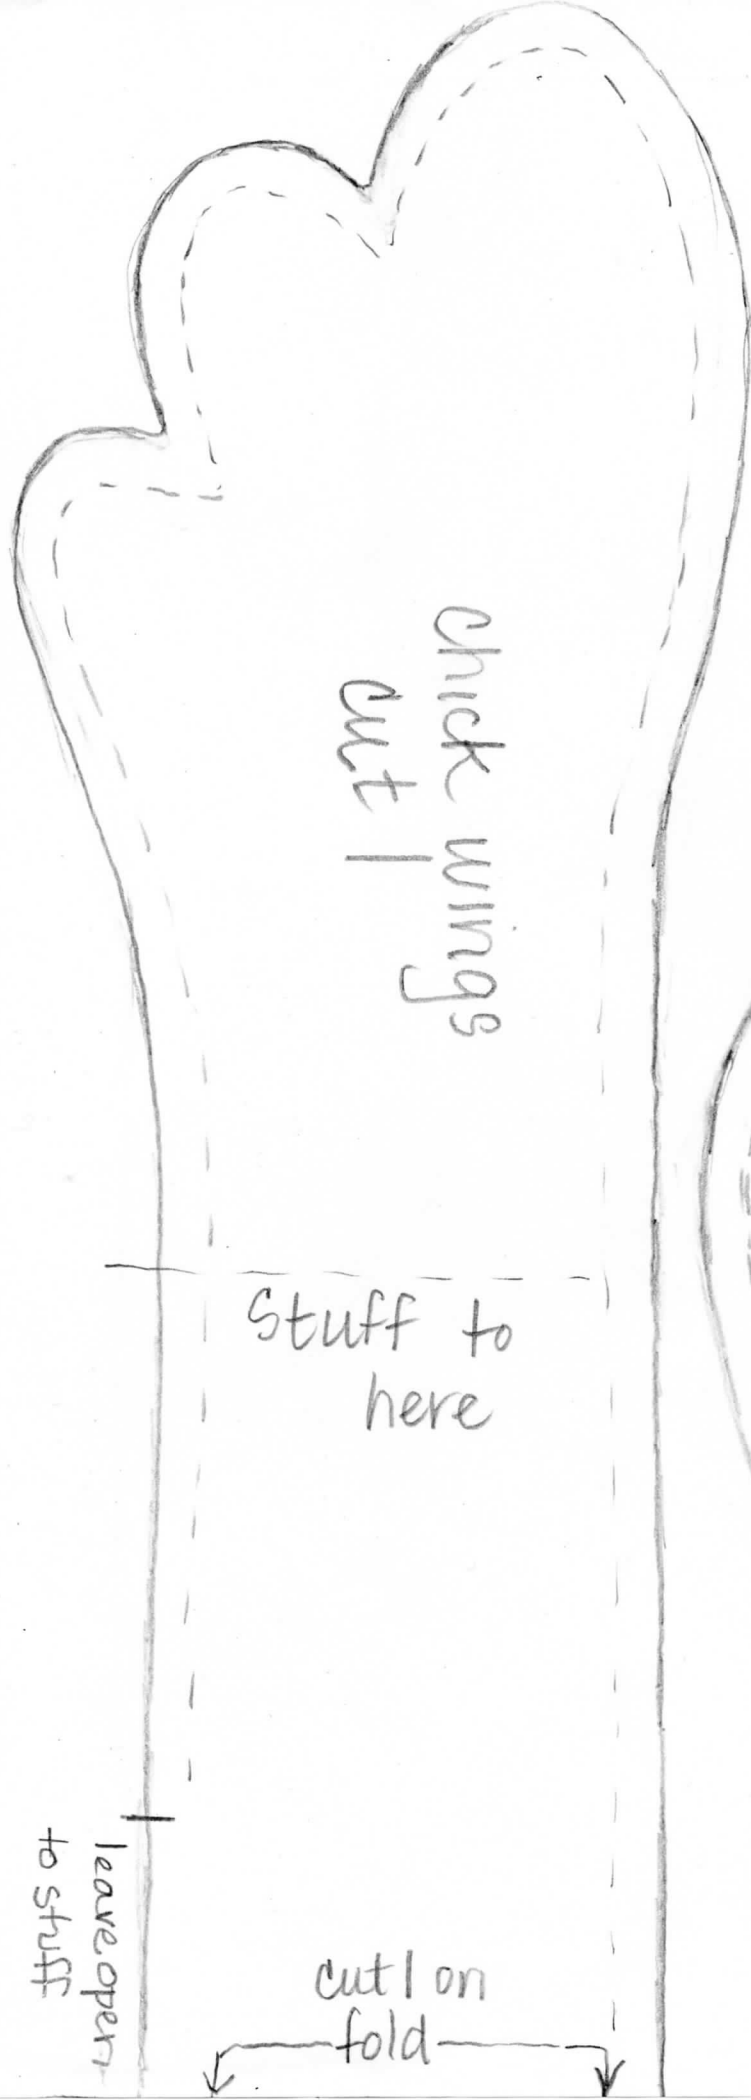 chick wings
cut 1
stuff to
here
leave open
to stuff
cut 1 on
fold